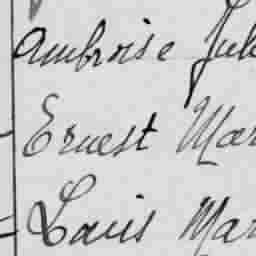 Ambroise Jul
Ernest Mar
Louis Mar